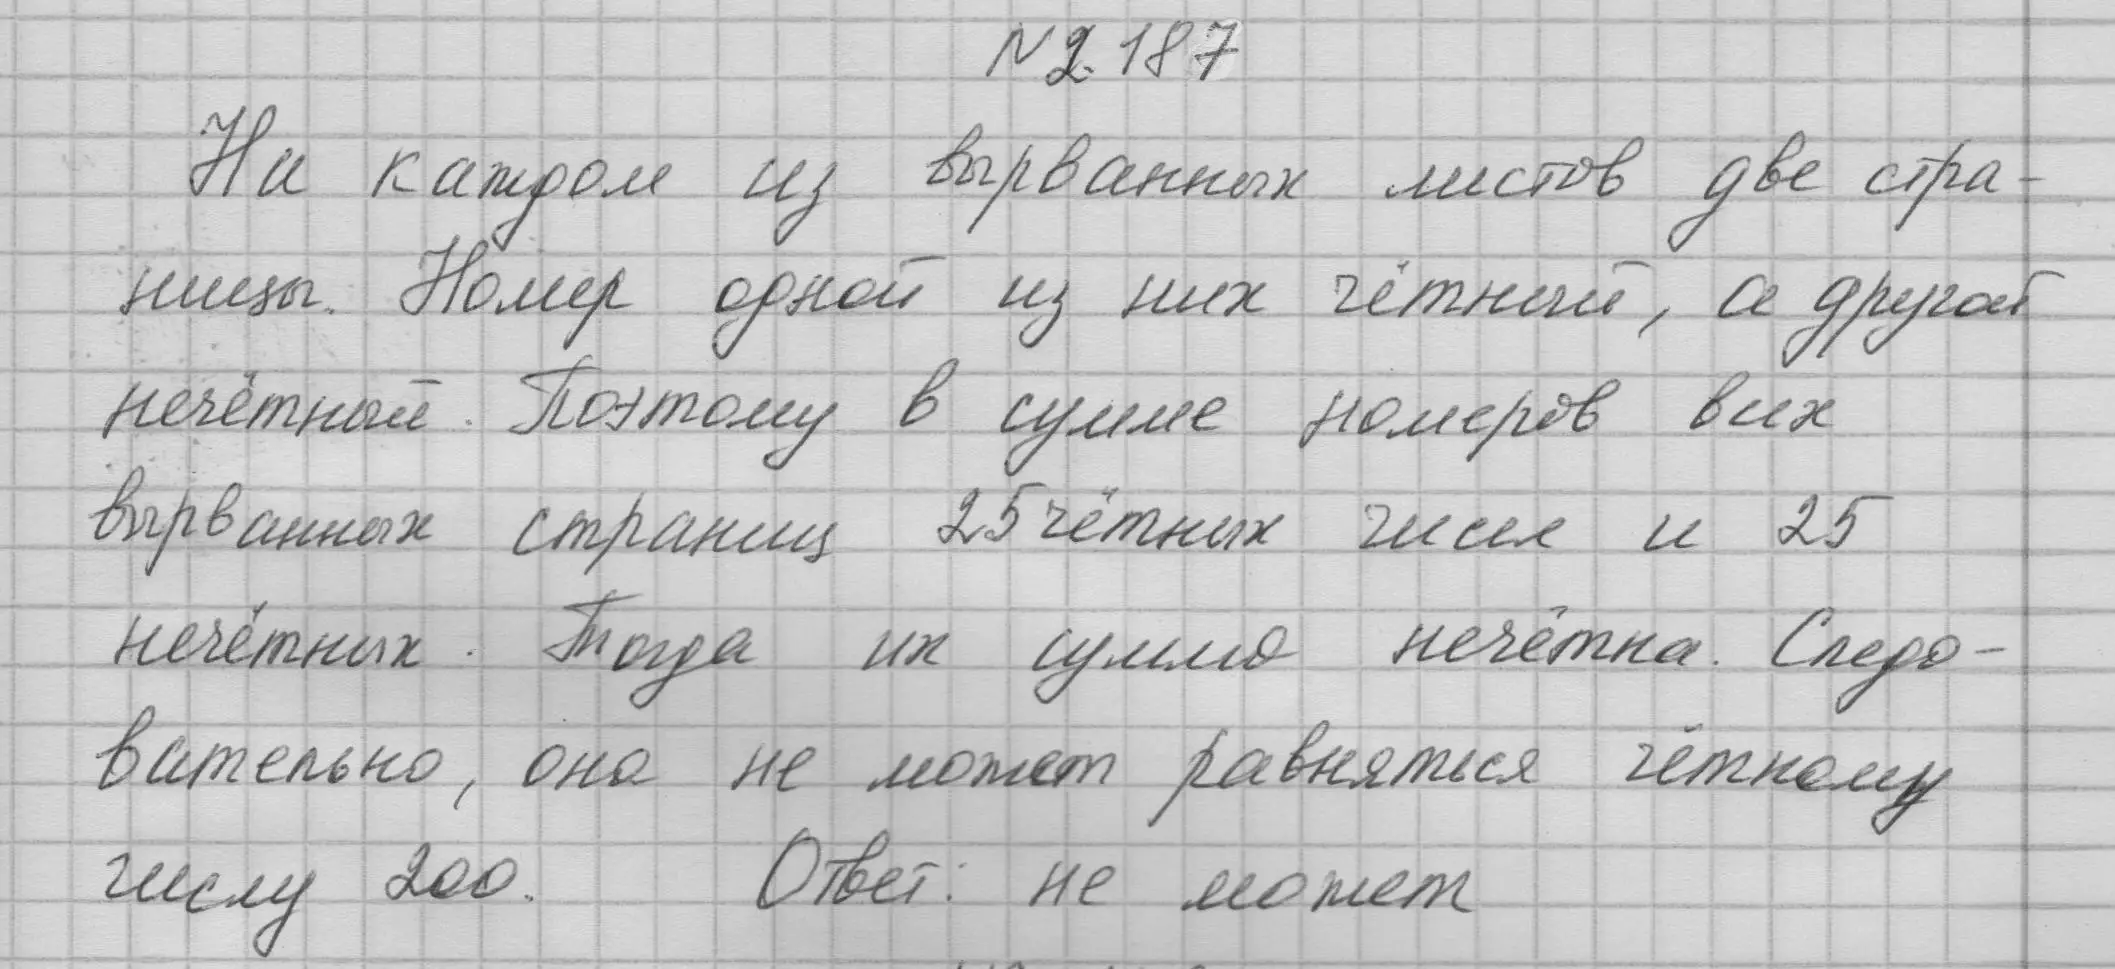 № 2.187
На каждом из вырванных листов две стра-
ницы. Номер одной из них чётный, а другой
нечётный. Поэтому в сумме номеров вих
вырванных страниц 25 чётных чисел и 25
нечётных. Тогда их сумма нечётна. Следо-
вательно, она не может равняться чётному
числу 200. Ответ: не может